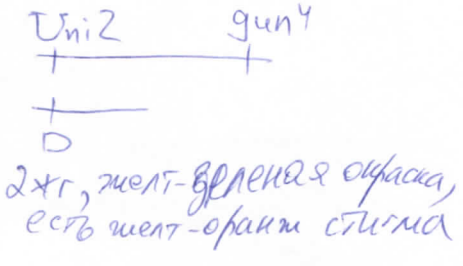 Uni2 gun4
D
2жг, желт-зеленая окраска,
есть желт-оранж стигма